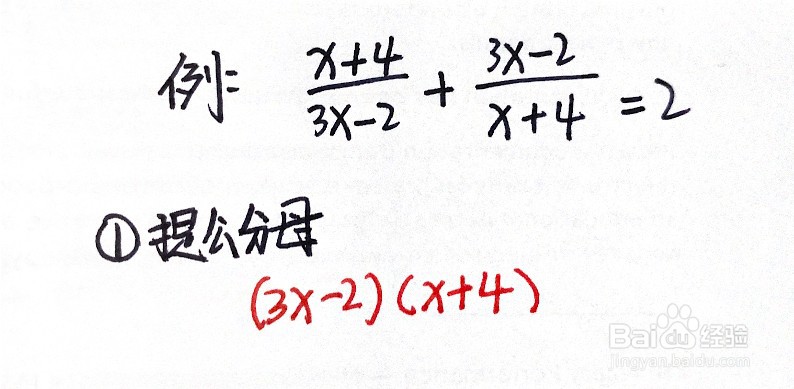 例: (x+4)/(3x-2) + (3x-2)/(x+4) = 2
① 提公分母
(3x-2)(x+4)
Baidu 经验
jingyan.baidu.com